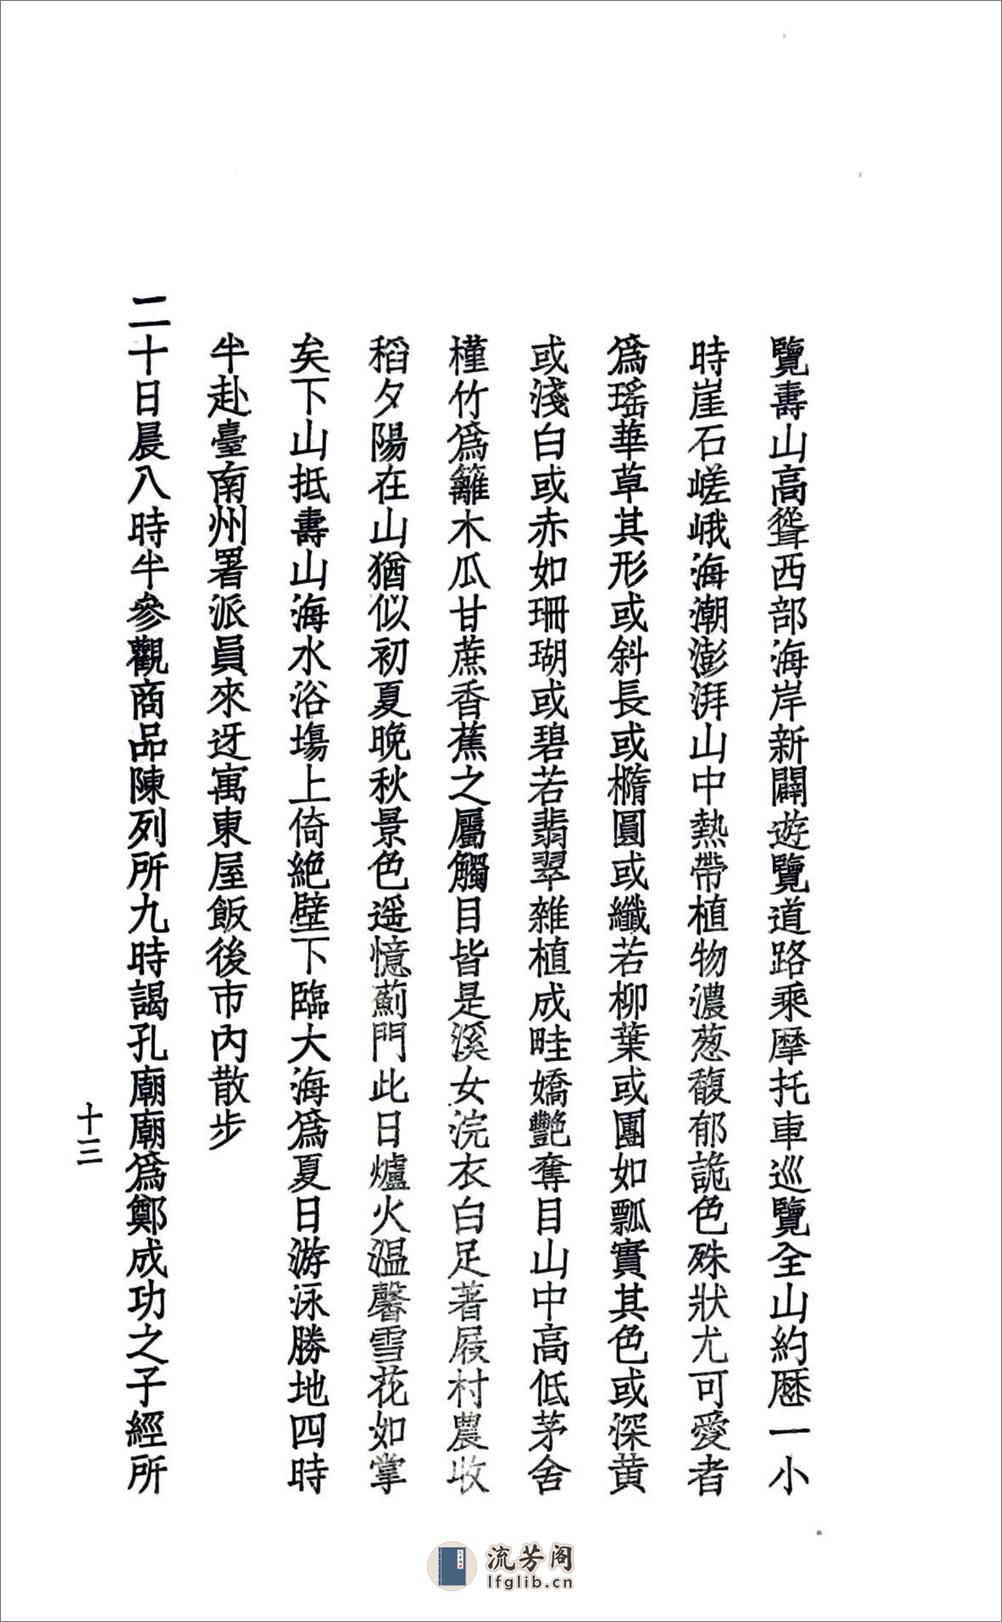 覽壽山高聳西部海岸新闢遊覽道路乘摩托車巡覽全山約歷一小
時崖石嵯峨海潮澎湃山中熱帶植物濃葱馥郁詭色殊狀尤可愛者
爲瑤華草其形或斜長或橢圓或纖若柳葉或團如瓢實其色或深黄
或淺白或赤如珊瑚或碧若翡翠雜植成畦嬌艷奪目山中高低茅舍
槿竹爲籬木瓜甘蔗香蕉之屬觸目皆是溪女浣衣白足著屐村農收
稻夕陽在山猶似初夏晚秋景色遥憶薊門此日爐火温馨雪花如掌
矣下山抵壽山海水浴塲上倚絶壁下臨大海爲夏日游泳勝地四時
半赴臺南州署派員來迓寓東屋飯後市内散步
二十日晨八時半參觀商品陳列所九時謁孔廟廟爲鄭成功之子經所
十三
流芳阁
lfglib.cn